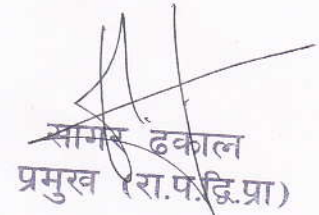 सागर ढकाल
प्रमुख (रा.प.द्वि.प्रा)